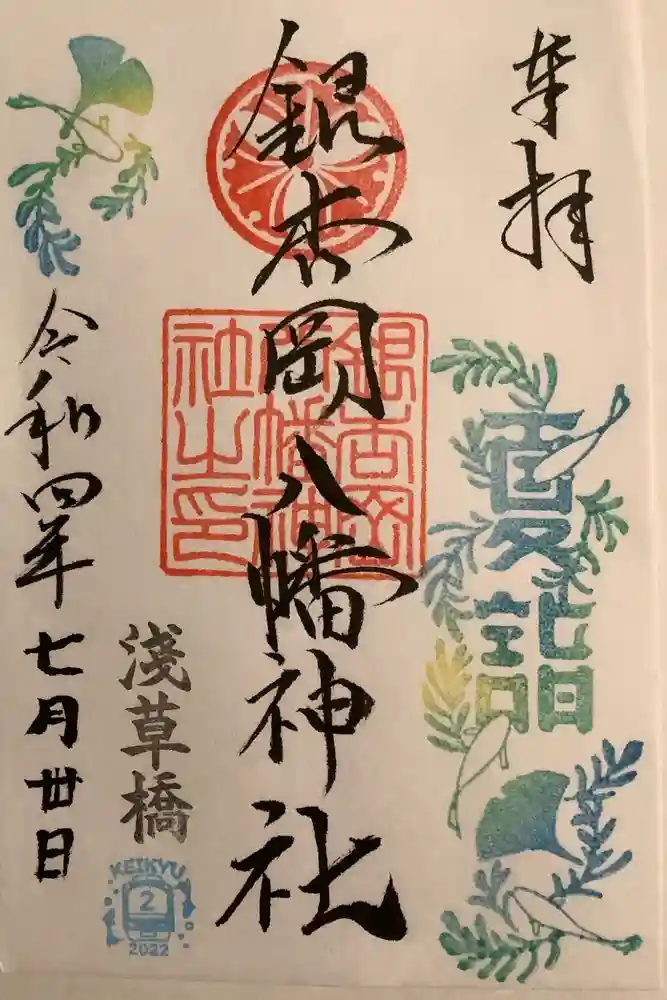 奉拝
夏詣
銀杏岡八幡神社
銀杏岡八幡神社之印
浅草橋
KEIKYU
2
2022
令和四年七月丗日